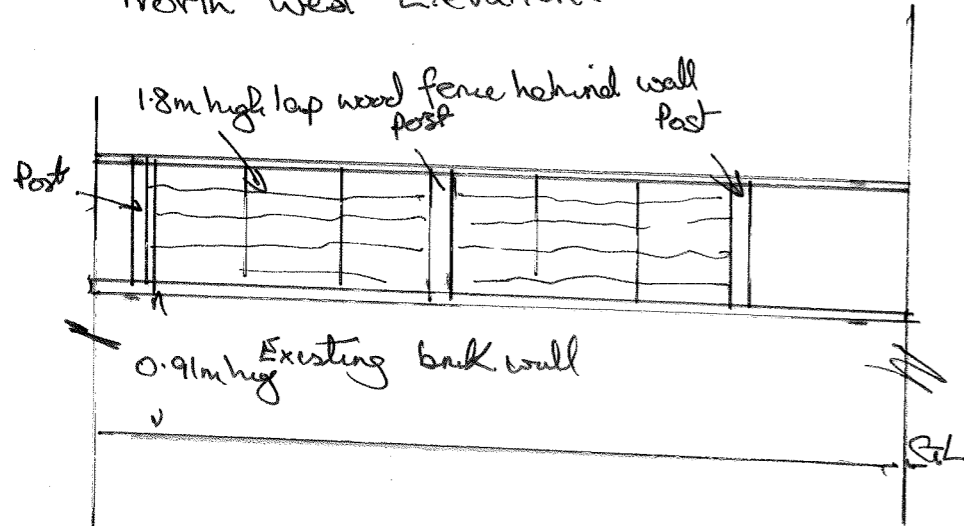 North West Elevation
1.8m high lap wood fence behind wall
Post
Post
Post
0.91m hig Existing brick wall
G.L